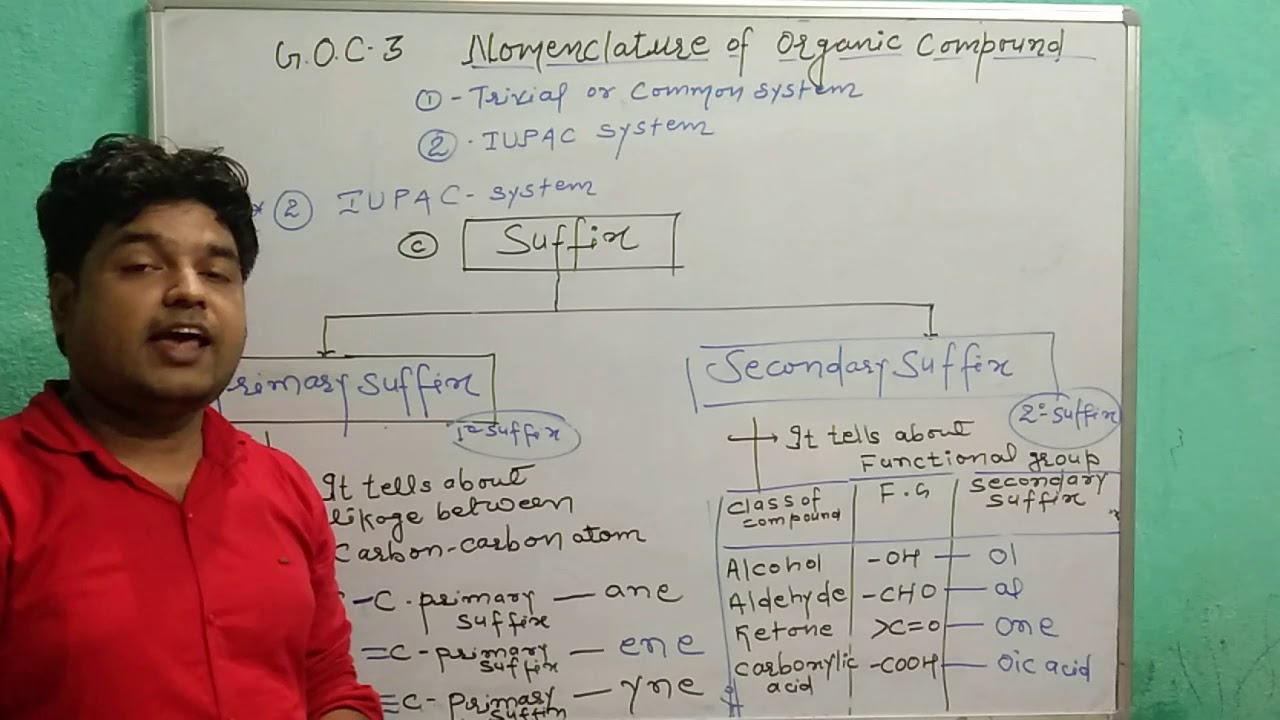 G.O.C-3 Nomenclature of Organic Compound
① - Trivial or Common system
② . IUPAC system
* ② IUPAC - system
Ⓒ Suffix
rimary Suffix
1°-suffix
It tells about
likage between
Carbon-carbon atom
-C - primary suffix — ane
=C - primary suffix — ene
≡C - primary suffix — yne
Secondary Suffix
2°-suffix
It tells about
Functional group
class of compound F.G secondary suffix
Alcohol -OH — ol
Aldehyde -CHO — al
Ketone >C=O — one
carboxylic acid -COOH — oic acid